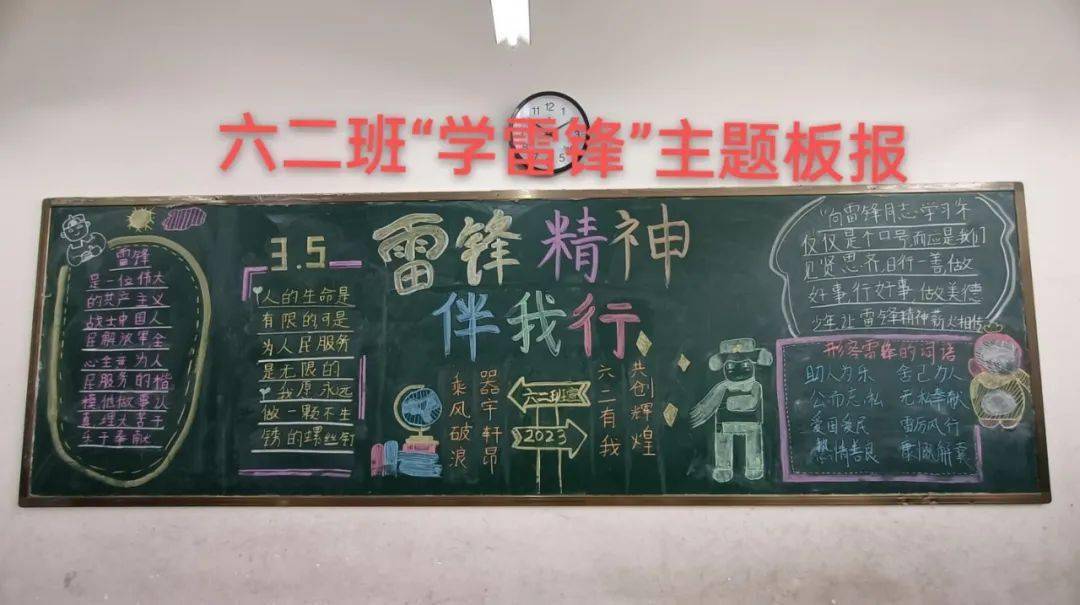 六二班“学雷锋”主题板报
雷锋
是一位伟大
的共产主义
战士中国人
民解放军全
心全意为人
民服务的楷
模他做事认
真埋头苦干
乐于奉献
3.5
人的生命是
有限的可是
为人民服务
是无限的
我愿永远
做一颗不生
锈的螺丝钉
雷锋精神
伴我行
乘风破浪
器宇轩昂
六二班
2023
六二有我
共创辉煌
“向雷锋同志学习”不
仅仅是个口号,而应是我们
见贤思齐,日行一善,做
好事,行好事,做美德
少年,让雷锋精神薪火相传
形容雷锋的词语
助人为乐 舍己为人
公而忘私 无私奉献
爱国爱民 雷厉风行
热情善良 慷慨解囊